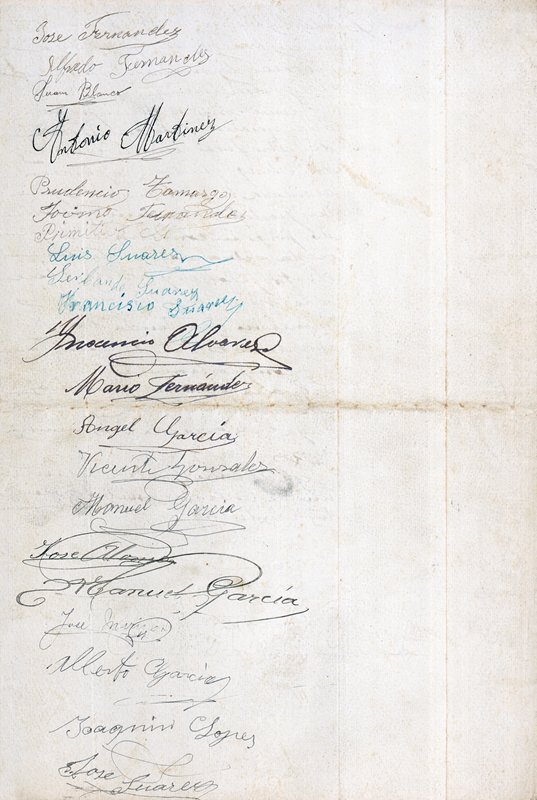 Jose Fernandez
Alfredo Fernandez
Juan Blanco
Antonio Martinez
Prudencio Tamargo
Fernandez
Luis Suarez
Suarez
Francisio Suarez
Inocencio Alvarez
Mario Fernández
Angel García
Vicente Gonzalez
Manuel Garcia
Jose
Manuel García
José
Alberto García
Joaquin Lopes
Jose Suarez